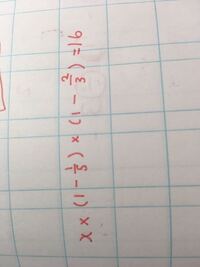 x × (1 - 1/5) × (1 - 2/3) = 16